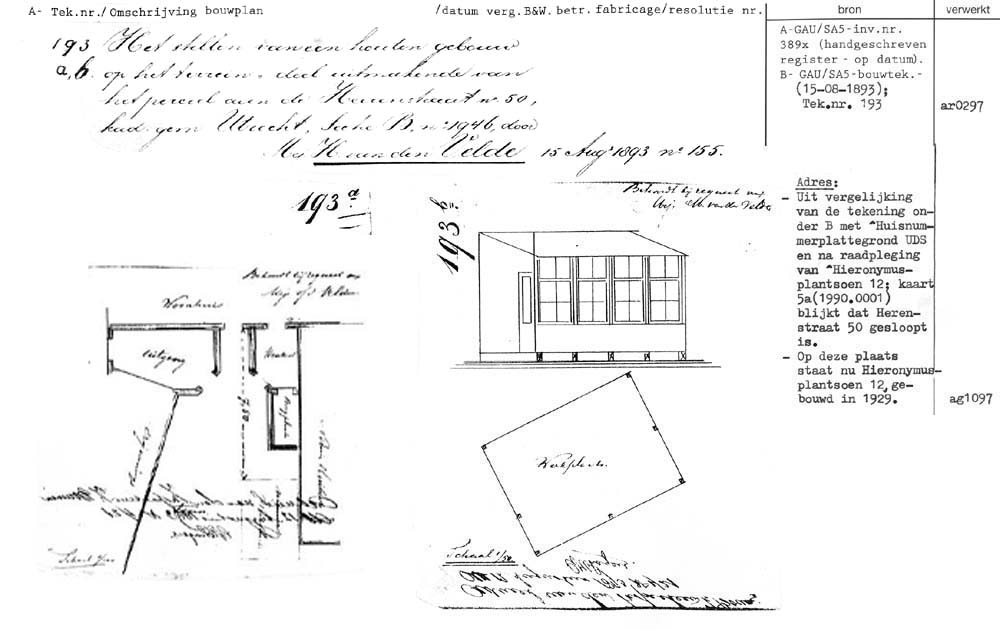 A- Tek.nr./Omschrijving bouwplan /datum verg.B&W. betr. fabricage/resolutie nr. bron verwerkt
193 Het stellen van een houten gebouw
a, b. op het terrein, deel uitmakende van
het perceel aan de Heerenstraat no 50,
kad. gem Utrecht, Sectie B, no 1946, door
H van den Velde 15 Augs 1893 no 155.
A-GAU/SA5-inv.nr.
389x (handgeschreven
register - op datum).
B- GAU/SA5-bouwtek.-
(15-08-1893);
Tek.nr. 193 ar0297
Adres:
- Uit vergelijking
van de tekening on-
der B met ^Huisnum-
merplattegrond UDS
en na raadpleging
van ^Hieronymus-
plantsoen 12; kaart
5a(1990.0001)
blijkt dat Heren-
straat 50 gesloopt
is.
- Op deze plaats
staat nu Hieronymus-
plantsoen 12, ge-
bouwd in 1929. ag1097
193 a
Behoort bij request van
Woonhuis
Uitgang
Keuken
7.50
Schaal 1/100
193 b.
Behoort bij request van
Wij. van den Velde
Werkplaats.
Schaal 1/50